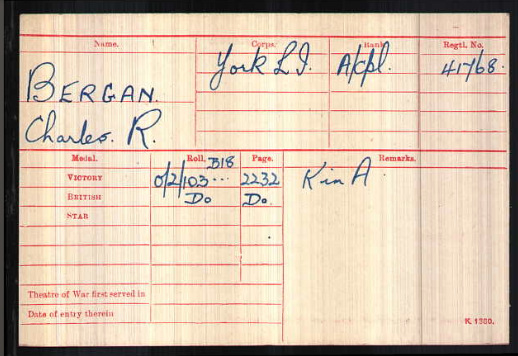 Name. Corps. Rank. Regtl. No.
BERGAN. York L.I. A/Cpl. 41768.
Charles. R.
Medal. Roll. Page. Remarks.
VICTORY O/2/103 B18 ... 2232 K in A.
BRITISH Do Do.
STAR
Theatre of War first served in
Date of entry therein
K. 1380.